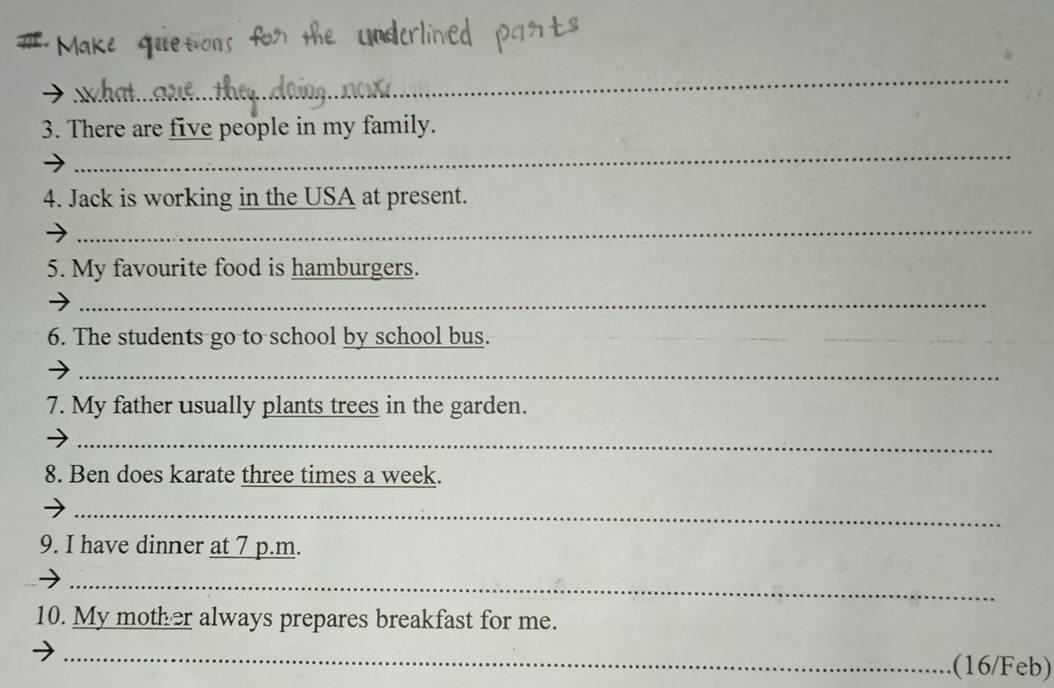 III. Make quetions for the underlined parts
→ what are they doing now
3. There are five people in my family.
→
4. Jack is working in the USA at present.
→
5. My favourite food is hamburgers.
→
6. The students go to school by school bus.
→
7. My father usually plants trees in the garden.
→
8. Ben does karate three times a week.
→
9. I have dinner at 7 p.m.
→
10. My mother always prepares breakfast for me.
→ (16/Feb)